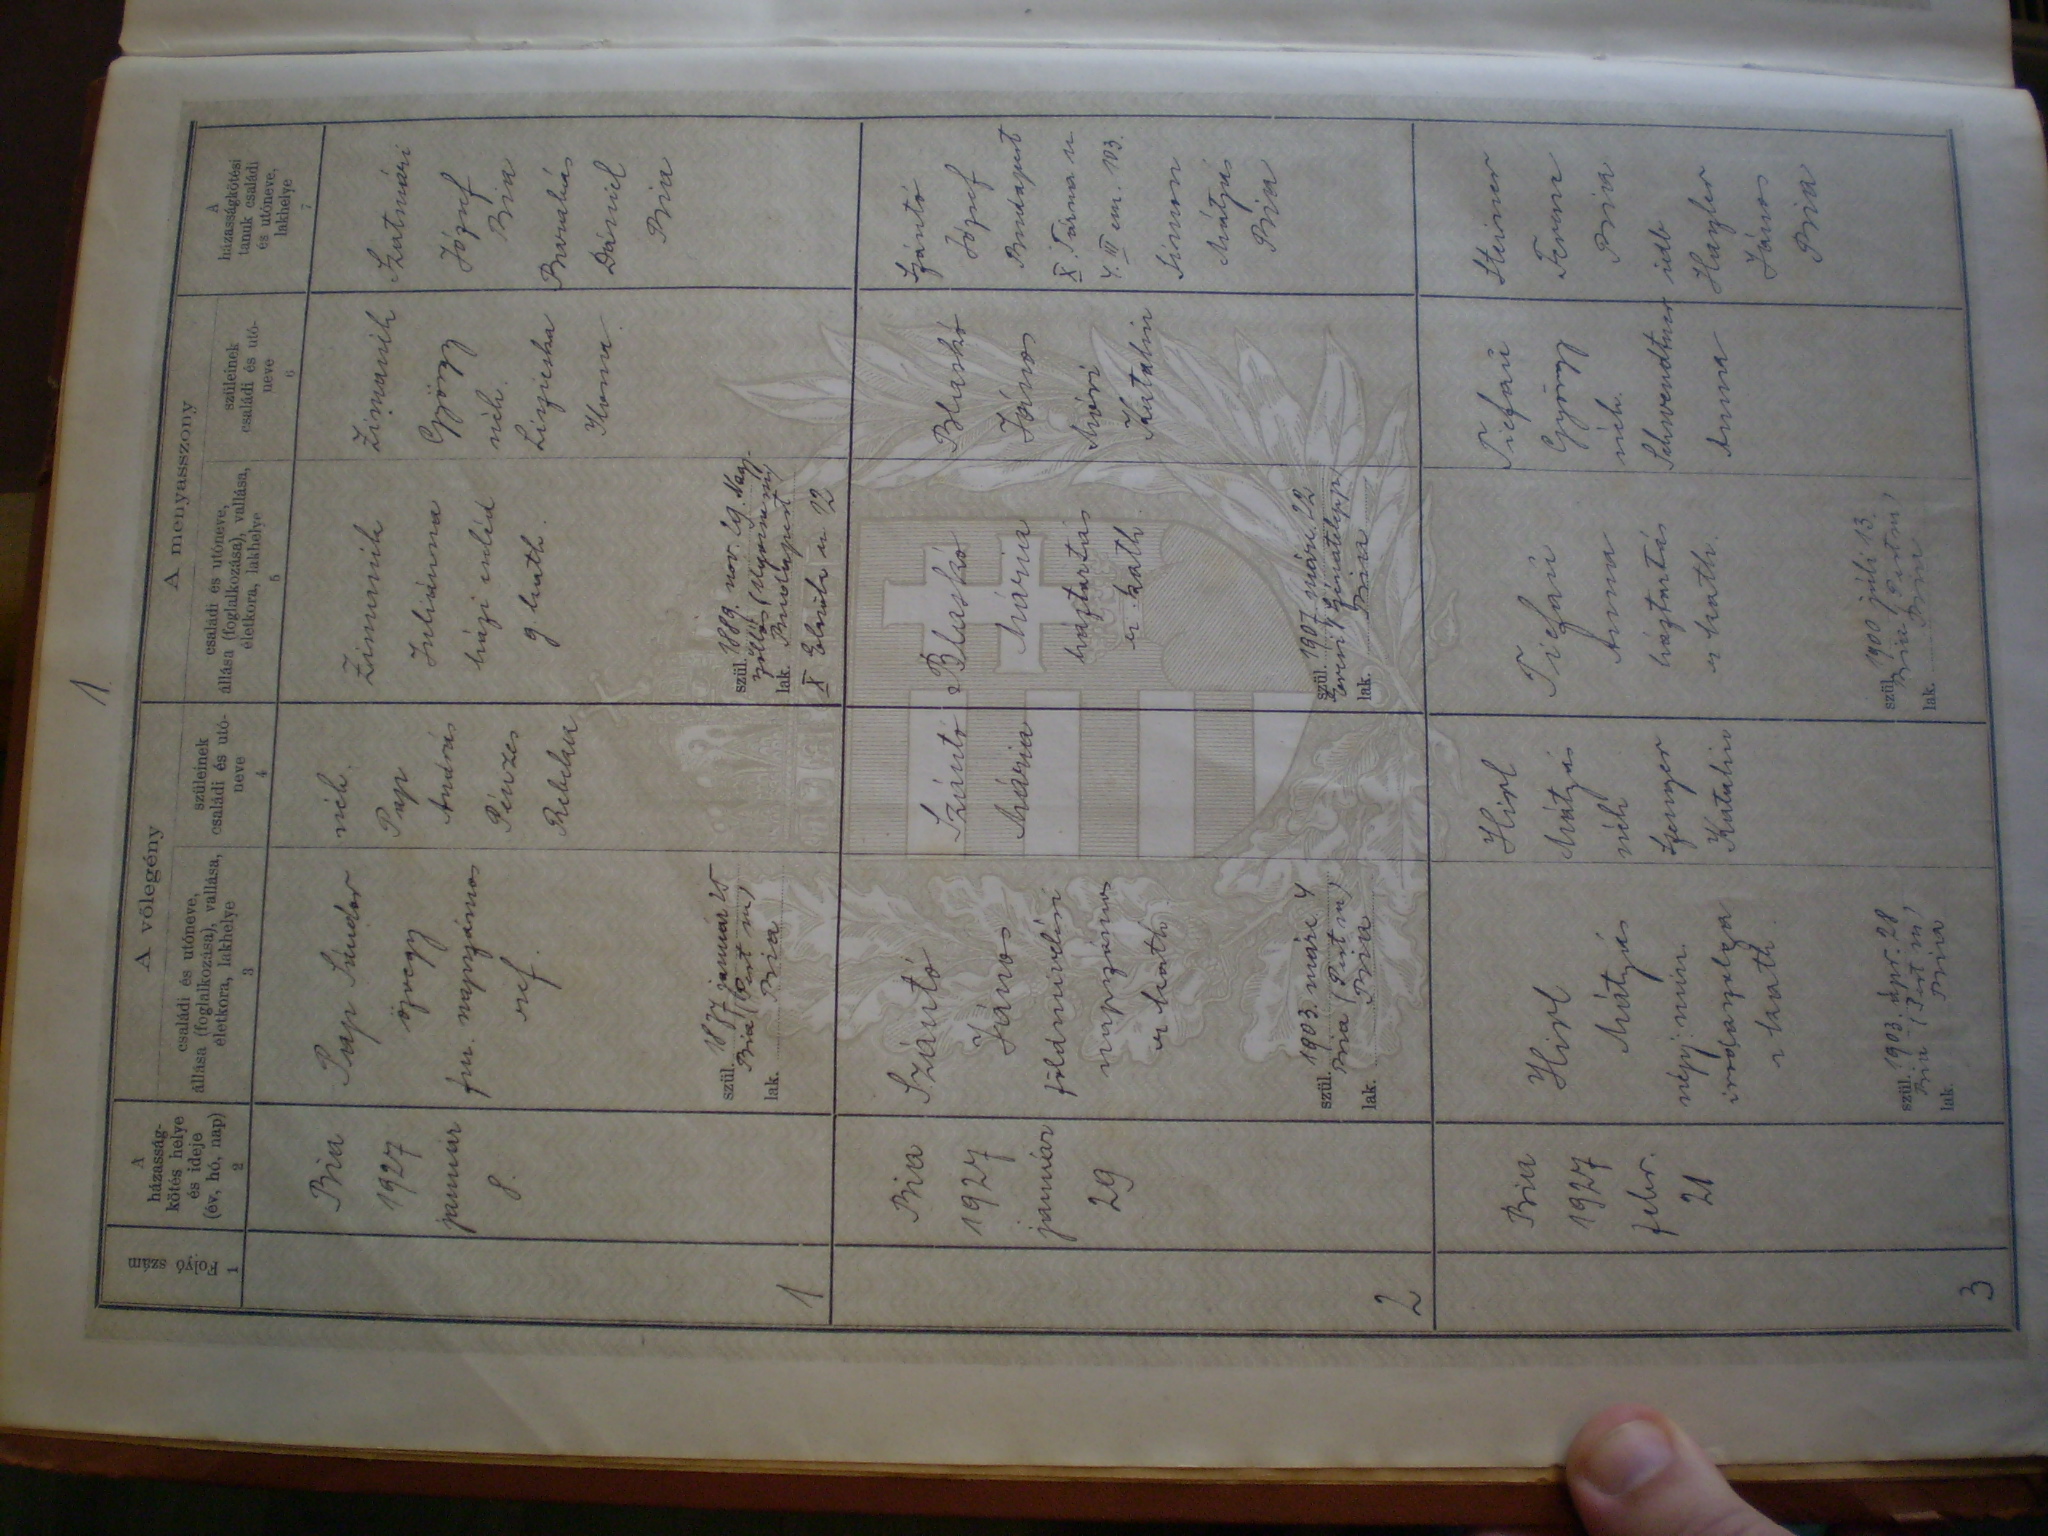 1.
A vőlegény
A menyasszony
Folyó szám
1
A
házasság-
kötés helye
és ideje
(év, hó, nap)
2
családi és utóneve,
állása (foglalkozása), vallása,
életkora, lakhelye
3
szüleinek
családi és utó-
neve
4
családi és utóneve,
állása (foglalkozása), vallása,
életkora, lakhelye
5
szüleinek
családi és utó-
neve
6
A
házasságkötési
tanuk családi
és utóneve,
lakhelye
7
1
Bia
1927
január
8.
Pap Sándor
özvegy
fm. napszámos
ref.
szül. 1887 január 25
Bia (Pest m)
lak. Bia
néh.
Pap
András
Pénzes
Rebeka
Zimanik
Julianna
házi cseléd
g. kath.
szül. 1889. nov. 29. Nagy-
lak. Budapest
X u 22
Zimanik
György
néh.
Ilona
Szatmári
József
Bia
Barabás
Dániel
Bia
2
Bia
1927
január
29
Szántó
János
földmívelési
napszámos
r kath.
szül. 1903. márc. 4
Bia (Pest m)
lak. Bia
Szántó
Mária
Blaskó
Mária
háztartás
r. kath.
szül. 1907 márc. 22
lak. Bia
Blaskó
János
Móri
Katalin
Szántó
József
Budapest
X. Tárna u
4. III em. 103.
Simon
Mátyás
Bia
3
Bia
1927
febr.
21
Hirl
Mátyás
r kath.
szül. 1903. ápr. 28
Bia (Pest m)
lak. Bia
Hirl
Mátyás
néh
Szenger
Katalin
Tiefaú
Anna
háztartás
r kath.
szül. 1900 júli 13.
Bia (Pestm)
lak. Bia
Tiefaú
György
néh.
Schwendtner
Anna
Steiner
Ferenc
Bia
id.
Hazler
János
Bia